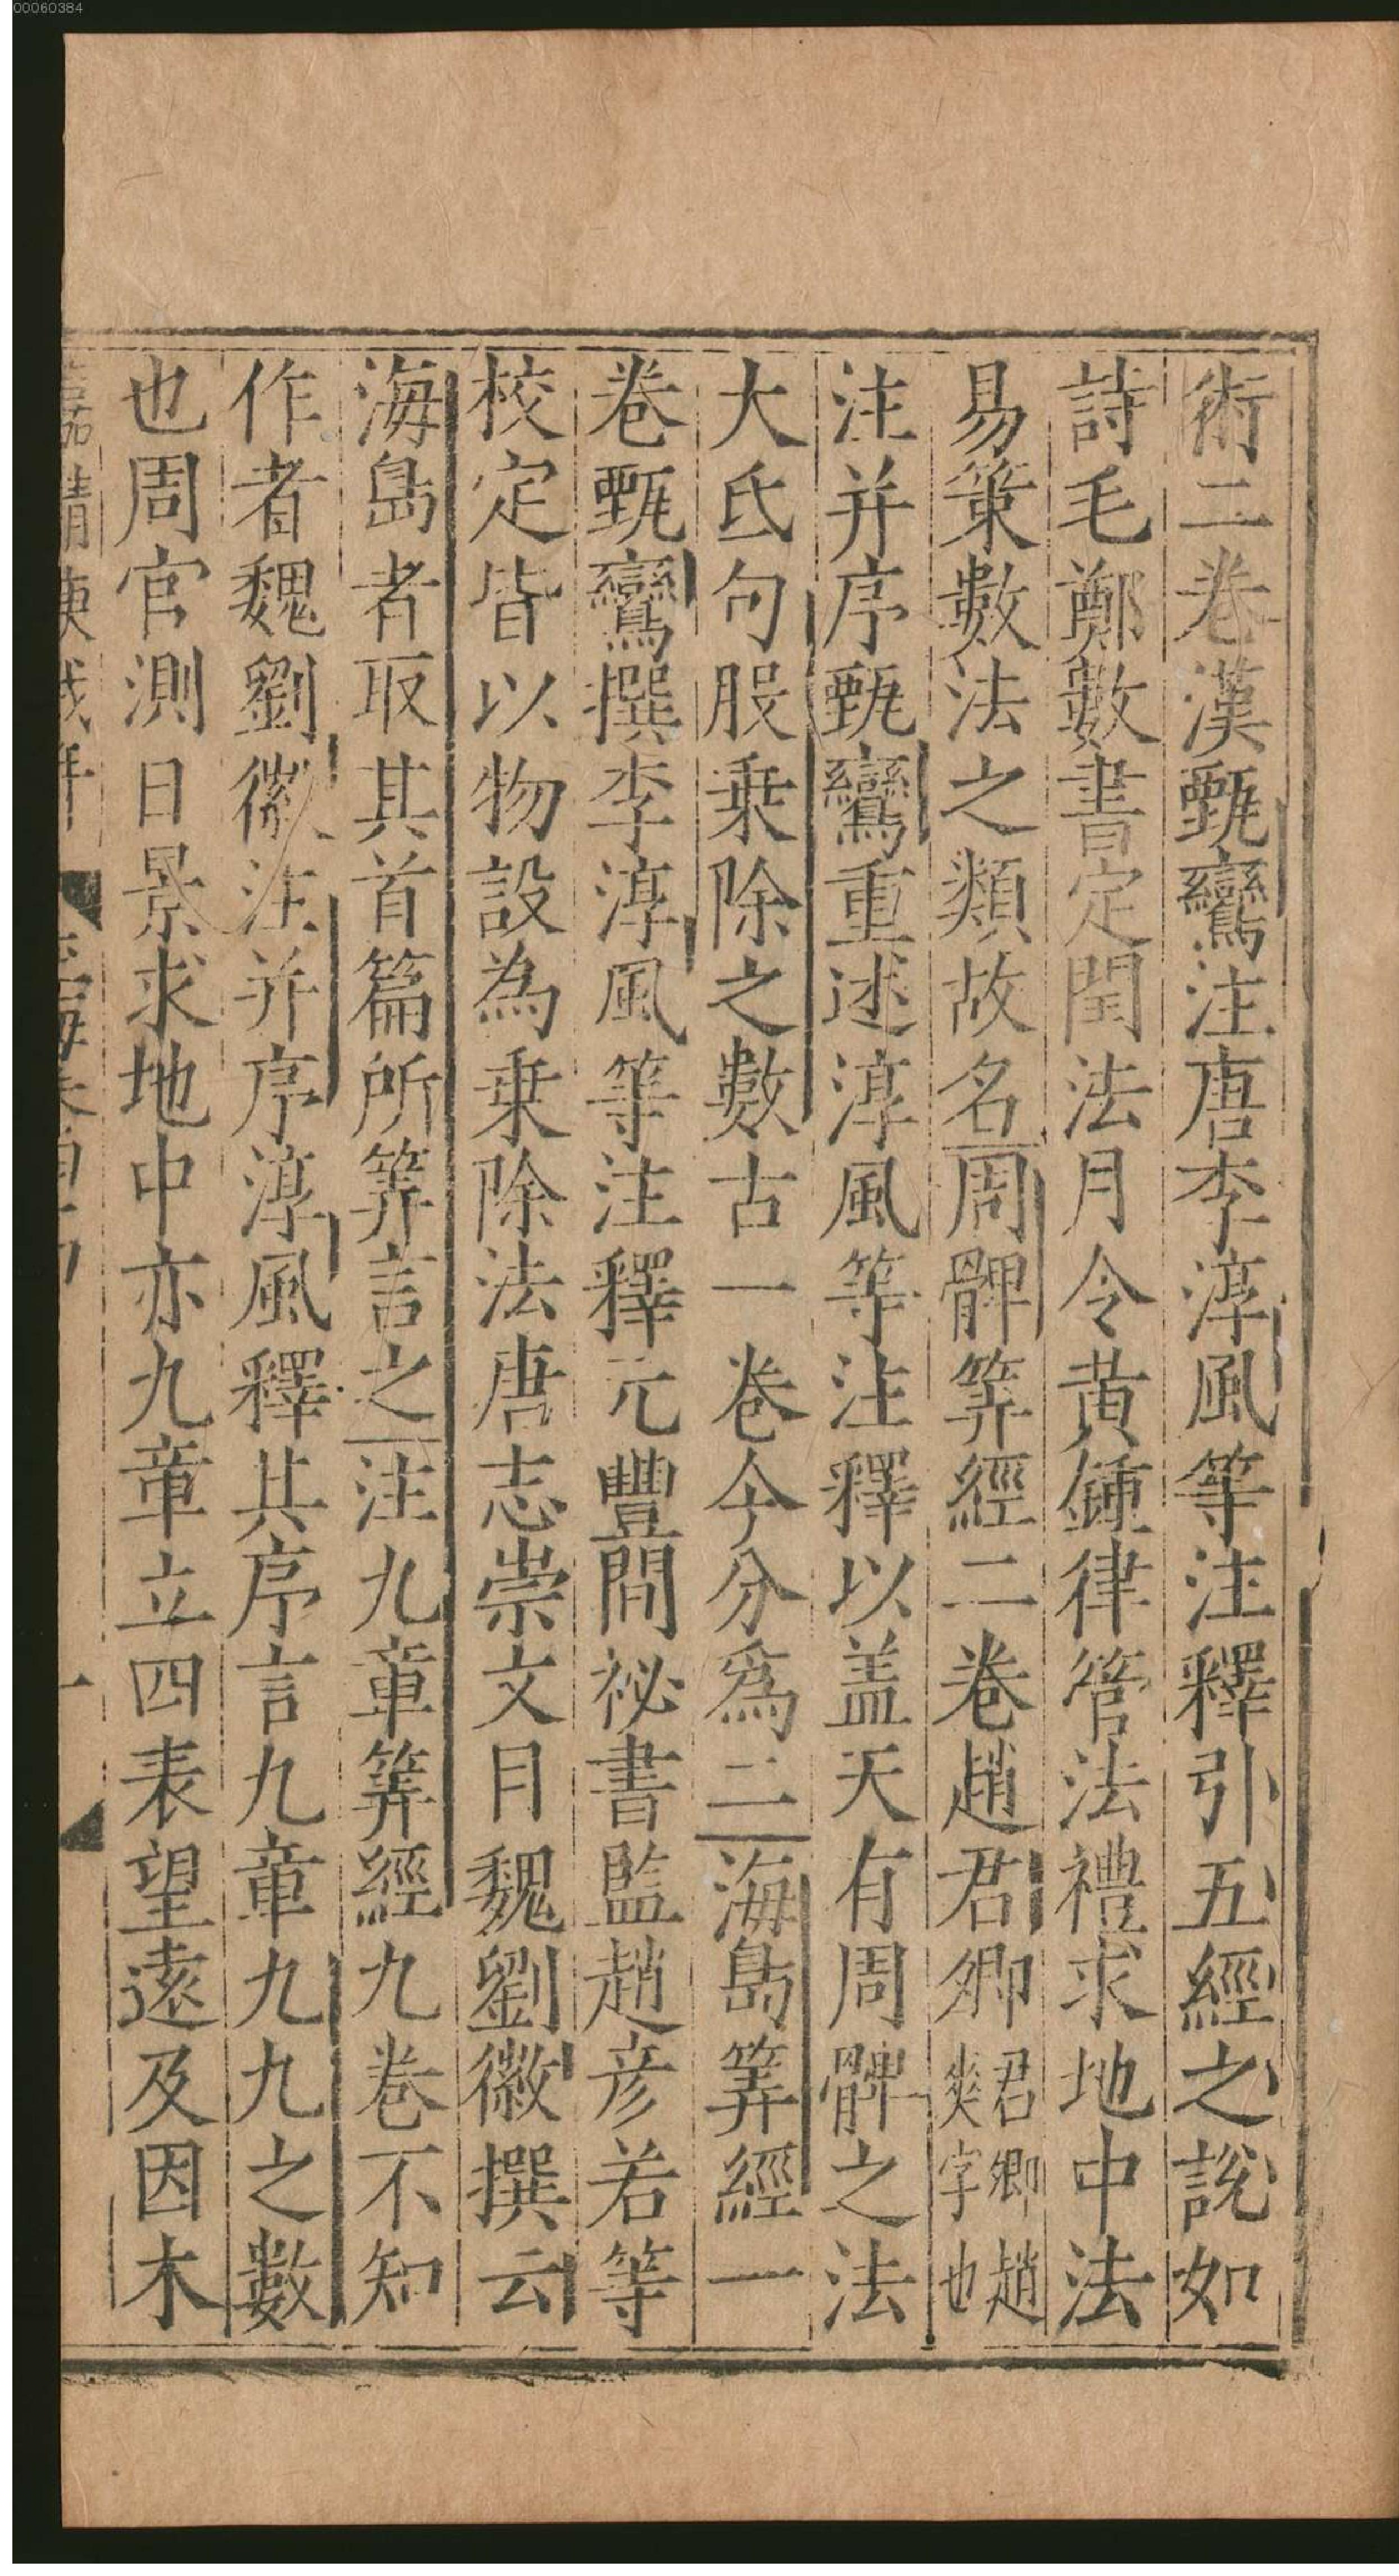 00060384
術二卷漢甄鸞注唐李淳風等注釋引五經之說如
詩毛鄭數書定閏法月令黃鍾律管法禮求地中法
易策數法之類故名周髀筭經二卷趙君卿君卿趙爽字也
注并序甄鸞重述淳風等注釋以盖天有周髀之法
大氐句股乗除之數古一卷今分爲二海島筭經一
卷甄鸞撰李淳風等注釋元豐間祕書監趙彦若等
校定皆以物設為乗除法唐志崇文目魏劉徽撰云
海島者取其首篇所筭言之注九章筭經九卷不知
作者魏劉徽注并序淳風釋其序言九章九九之數
也周官測日景求地中亦九章立四表望遠及因木